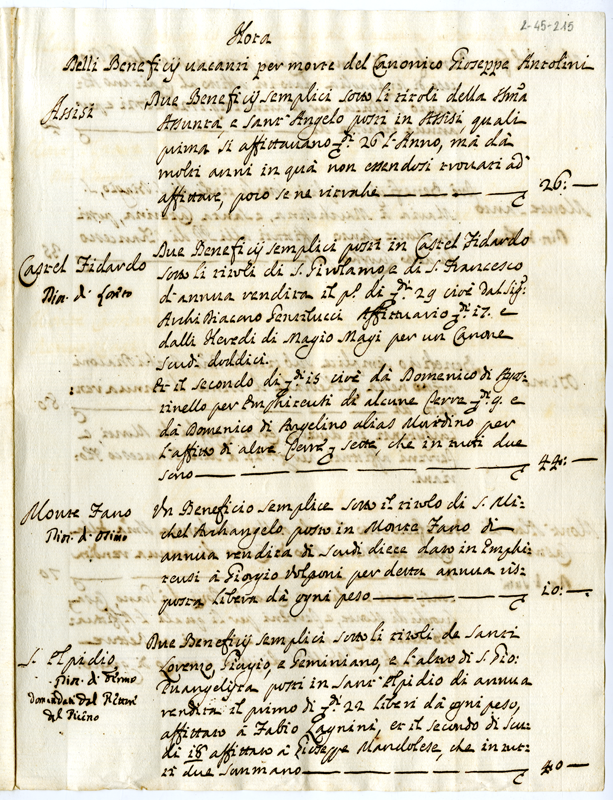 2-45-215
Nota
Delli Beneficij uacanti per morte del Canonico Gioseppe Antolini
Assisi
Due Beneficij semplici sotto li titoli della Sma
Assunta, e Sant' Angelo posti in Assisi, quali
prima si affittauano 26 l'Anno, mà dà
molti anni in quà non essendosi trouati ad
affittare, poco se ne ritrahe 26: —
Castel Fidardo
Dioc. di Loreto
Due Beneficij semplici posti in Castel Fidardo
sotto li titoli di S. Girolamo e di S. Francesco
d'annua rendita il po. di 29 cioè dal Sigr.
Archidiacono Gentilucci Affittuario 17. e
dalli Heredi di Magio Magi per un Canone
scudi doddici.
Et il secondo di 15 cioè dà Domenico di Agos-
tinello per Emphiteuti di alcune Terre 9. e
dà Domenico di Angelino alias Murdino per
l'affitto di altre Terre sette, che in tutti due
sono 44: —
Monte Fano
Dioc. d' Osimo
Un Beneficio semplice sotto il titolo di S. Mi-
chel Archangelo posto in Monte Fano di
annua rendita di Scudi diece dato in Emphi-
teusi à Giorgio Volponi per detta annua ris-
posta libera dà ogni peso 10: —
S. Elpidio
Dioc. di Fermo
domandati dal Rettore
del Piceno
Due Beneficij semplici sotto li titoli de Santi
Lorenzo, Biagio, e Geminiano, e l'altro di S. Gio:
Euangelista posti in Sant' Elpidio di annua
rendita il primo di 22 liberi dà ogni peso,
affittato à Fabio Lagnini, et il secondo di Scu-
di 18 affittato à Gioseppe Mandolese, che in tut-
ti due sommano 40 —